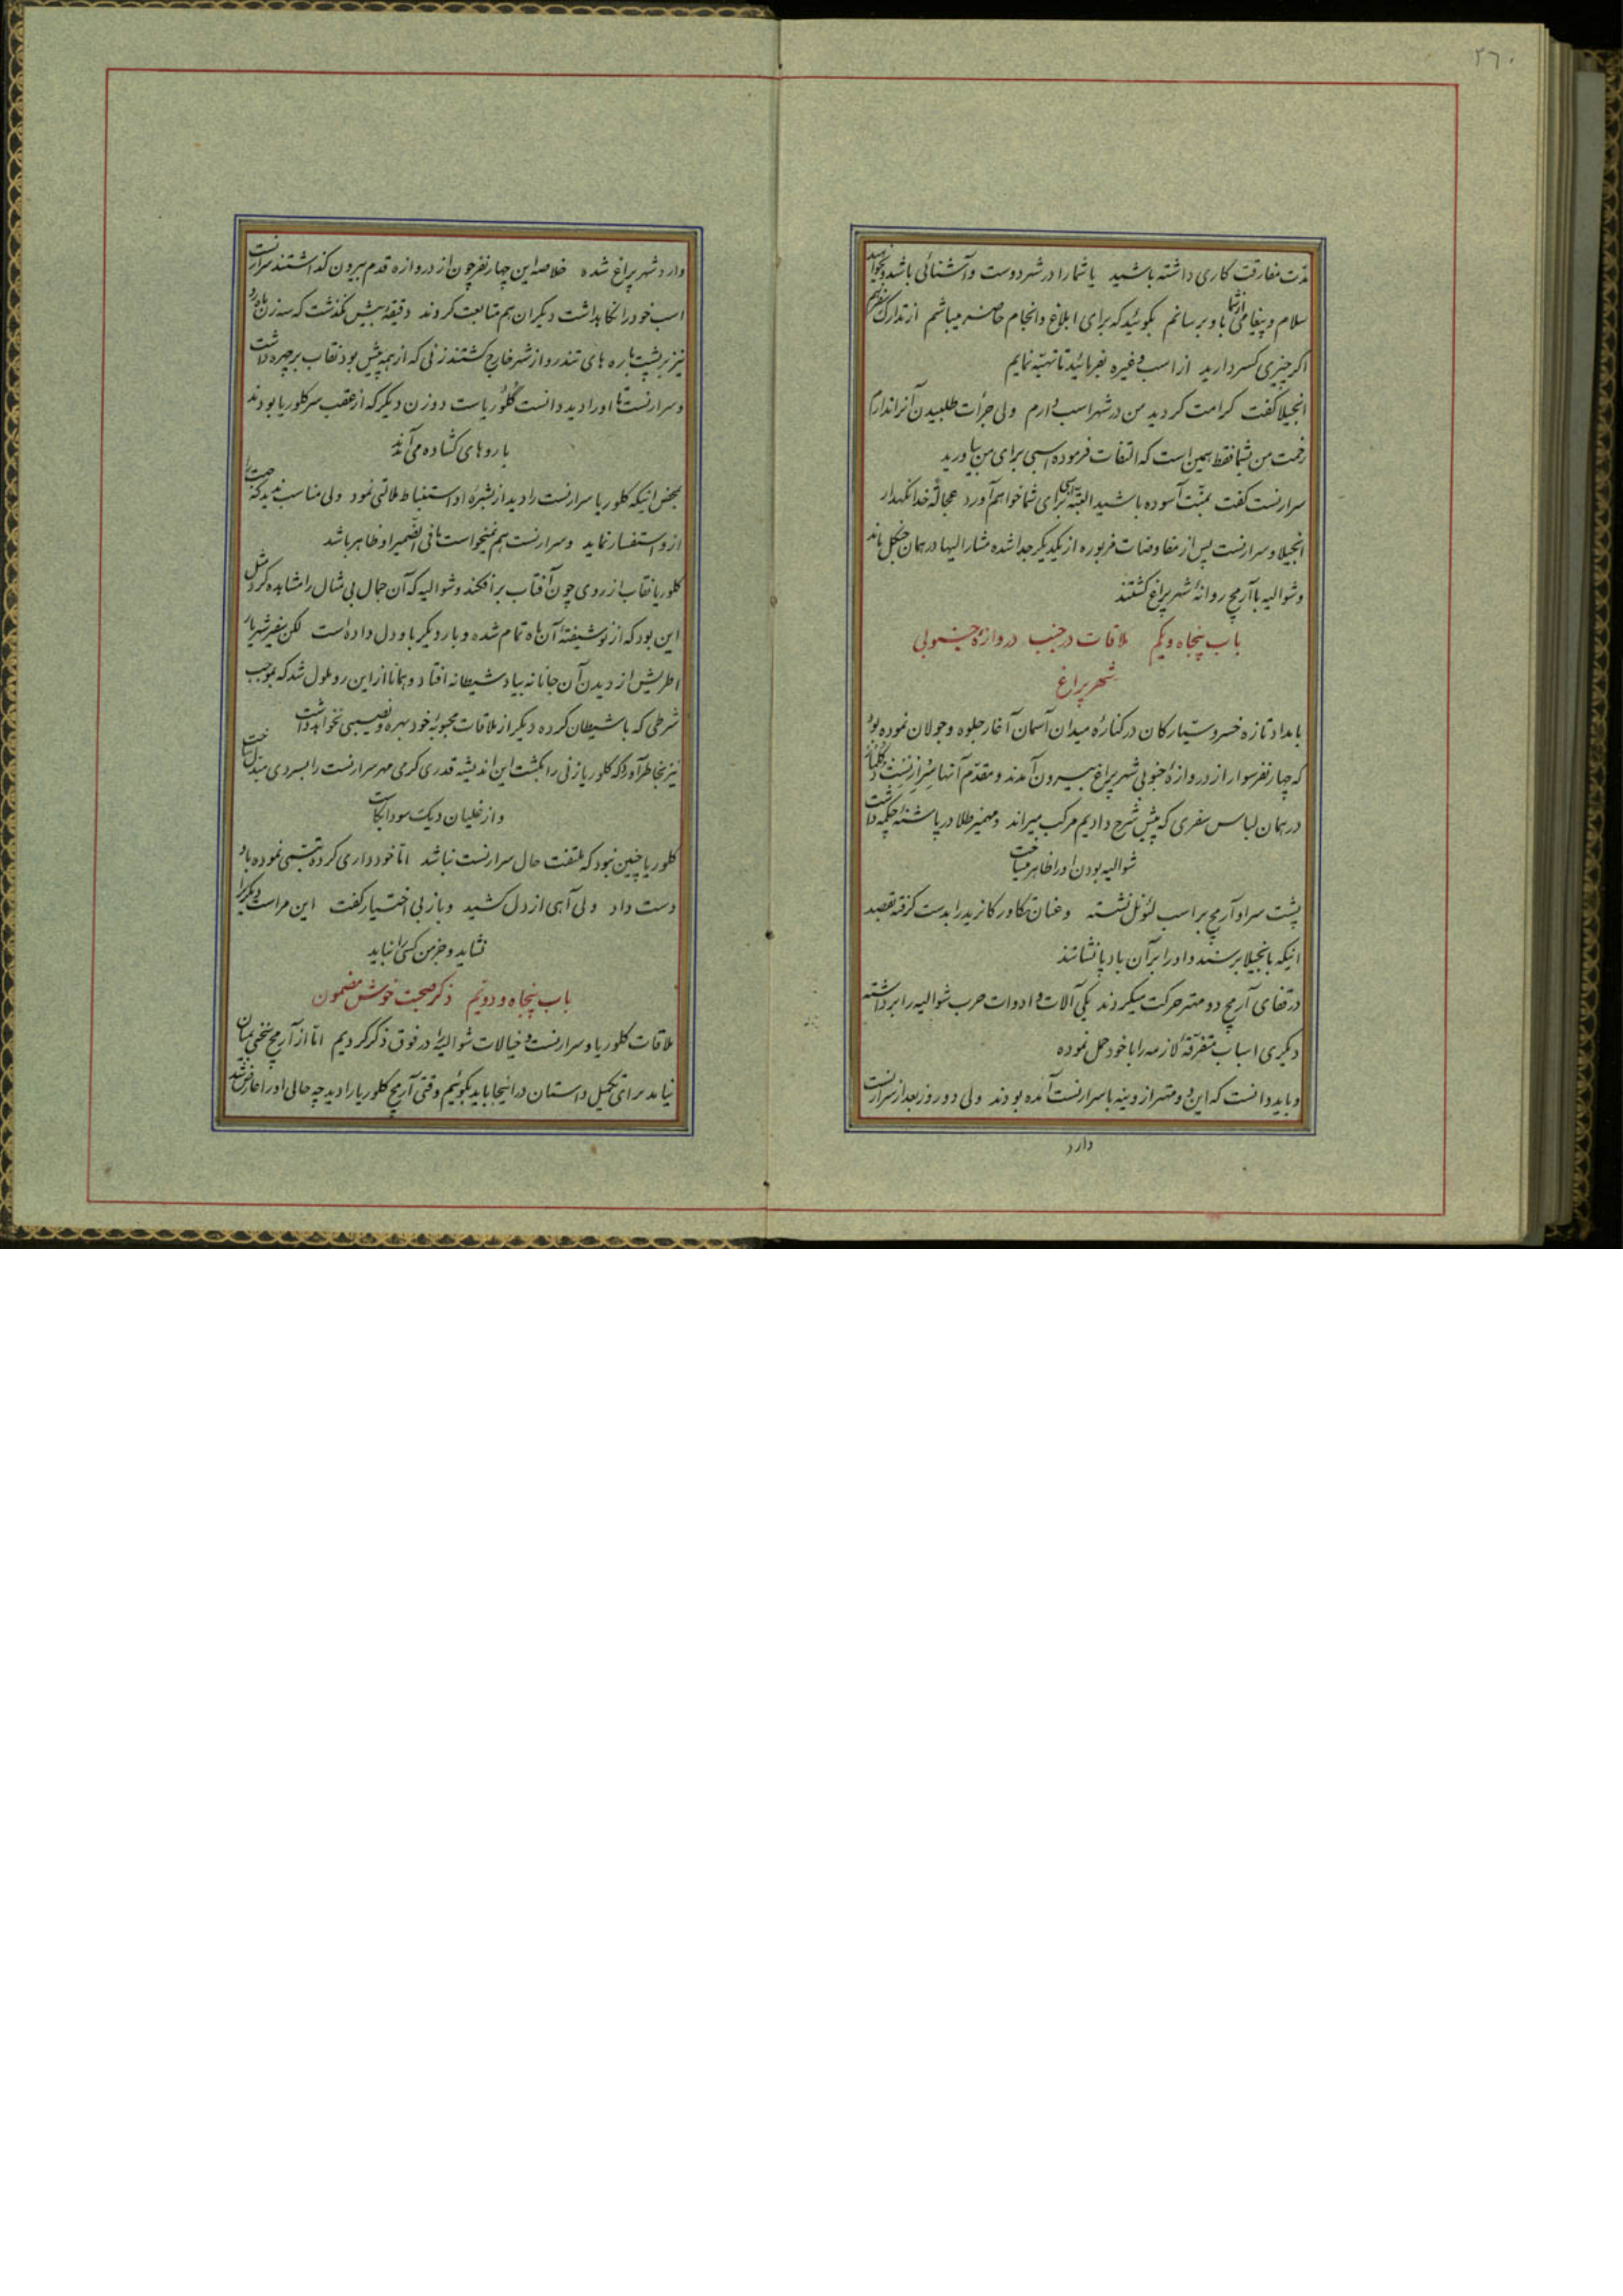 ۲۶۰
مدّت مفارقت کاری داشته باشید یا شما را در شهر دوست و آشنائی باشد و بخواهید
سلام و پیغامی از شما باو برسانم بگوئید که برای ابلاغ و انجام حاضر میباشم از تدارک سفر هم
اگر چیزی کسر دارید از اسب و غیره بفرمائید تا تهیّه نمایم
انجیلا گفت کرامت کردید من در شهر اسب دارم ولی جرأت طلبیدن آنرا ندارم
زحمت من بشما فقط همین است که التفات فرموده اسبی برای من بیاورید
سرارنست گفت بمنّت آسوده باشید البتّه برای شما خواهم آورد عجالةً خدا نگهدار
انجیلا و سرارنست پس از مفاوضات مزبوره از یکدیگر جدا شده مشارالیها در همان جنگل ماند
و شوالیه با آرمج روانهٔ شهر پراغ گشتند
باب پنجاه و یکم ملاقات در جنب دروازهٔ جنوبی
شهر پراغ
بامداد تازه خسرو سیّارگان در کنارهٔ میدان آسمان آغاز جلوه و جولان نموده بود
که چهار نفر سوار از دروازهٔ جنوبی شهر پراغ بیرون آمدند و مقدّم آنها سرارنست دکلنار
در همان لباس سفری که پیش شرح دادیم مرکب میراند و مهمیز طلا در پاشنه چکمه داشت
شوالیه بودن او را ظاهر میساخت
پشت سر او آرمج بر اسب لئونل نشسته و عنان تکاور کانرید را بدست گرفته بقصد
اینکه بانجیلا برسند و او را بر آن بادپا نشانند
در قفای آرمج دو مهتر حرکت میکردند یکی آلات و ادوات حرب شوالیه را برداشته
دیگری اسباب متفرّقهٔ لازمه را با خود حمل نموده
و باید دانست که این دو مهتر از وینه با سرارنست آمده بودند ولی دو روز بعد از سرارنست
وارد
وارد شهر پراغ شده خلاصه این چهار نفر چون از دروازه قدم بیرون گذاشتند سرارنست
اسب خود را نگاهداشت دیگران هم متابعت کردند دقیقهٔ بیش نگذشت که سه زن ماه رو
نیز بر پشت باره های تندرو از شهر خارج گشتند زنی که از همه پیش بود نقاب بر چهره داشت
و سرارنست تا او را دید دانست گلوریاست دو زن دیگر که از عقب سر گلوریا بودند
با روهای گشاده می آمدند
بمحض اینکه گلوریا سرارنست را دید از بشرهٔ او استنباط ملالتی نمود ولی مناسب ندید که جهت را
از او استفسار نماید و سرارنست هم نمیخواست ما فی الضّمیر او ظاهر باشد
گلوریا نقاب از روی چون آفتاب برافکند و شوالیه که آن جمال بی مثال را مشاهده کرد مثل
این بود که از نو شیفتهٔ آن ماه تمام شده و بار دیگر باو دل داده است لکن سفیر شهریار
اطریش از دیدن آن جانانه بیاد شیطانه افتاد و همانا از این رو ملول شد که بموجب
شرطی که با شیطان کرده دیگر از ملاقات محبوبهٔ خود بهره و نصیبی نخواهد داشت
نیز بخاطر آورد که گلوریا زنی را بکشت این اندیشه قدری گرمی مهر سرارنست را بسردی مبدّل ساخت
و از غلیان دیک سودا کاست
گلوریا چنین نبود که ملتفت حال سرارنست نباشد امّا خودداری کرده تبسّمی نموده باو
دست داد ولی آهی از دل کشید و باز بی اختیار گفت این مراست دیگری را
نشاید و جز من کسی را نباید
باب پنجاه و دویّم ذکر صحبت خوش مضمون
ملاقات گلوریا و سرارنست و خیالات شوالیه را در فوق ذکر کردیم امّا از آرمج سخنی بمیان
نیامد برای تکمیل داستان در اینجا باید بگوئیم وقتی آرمج گلوریا را دید چه حالی او را عارض شد